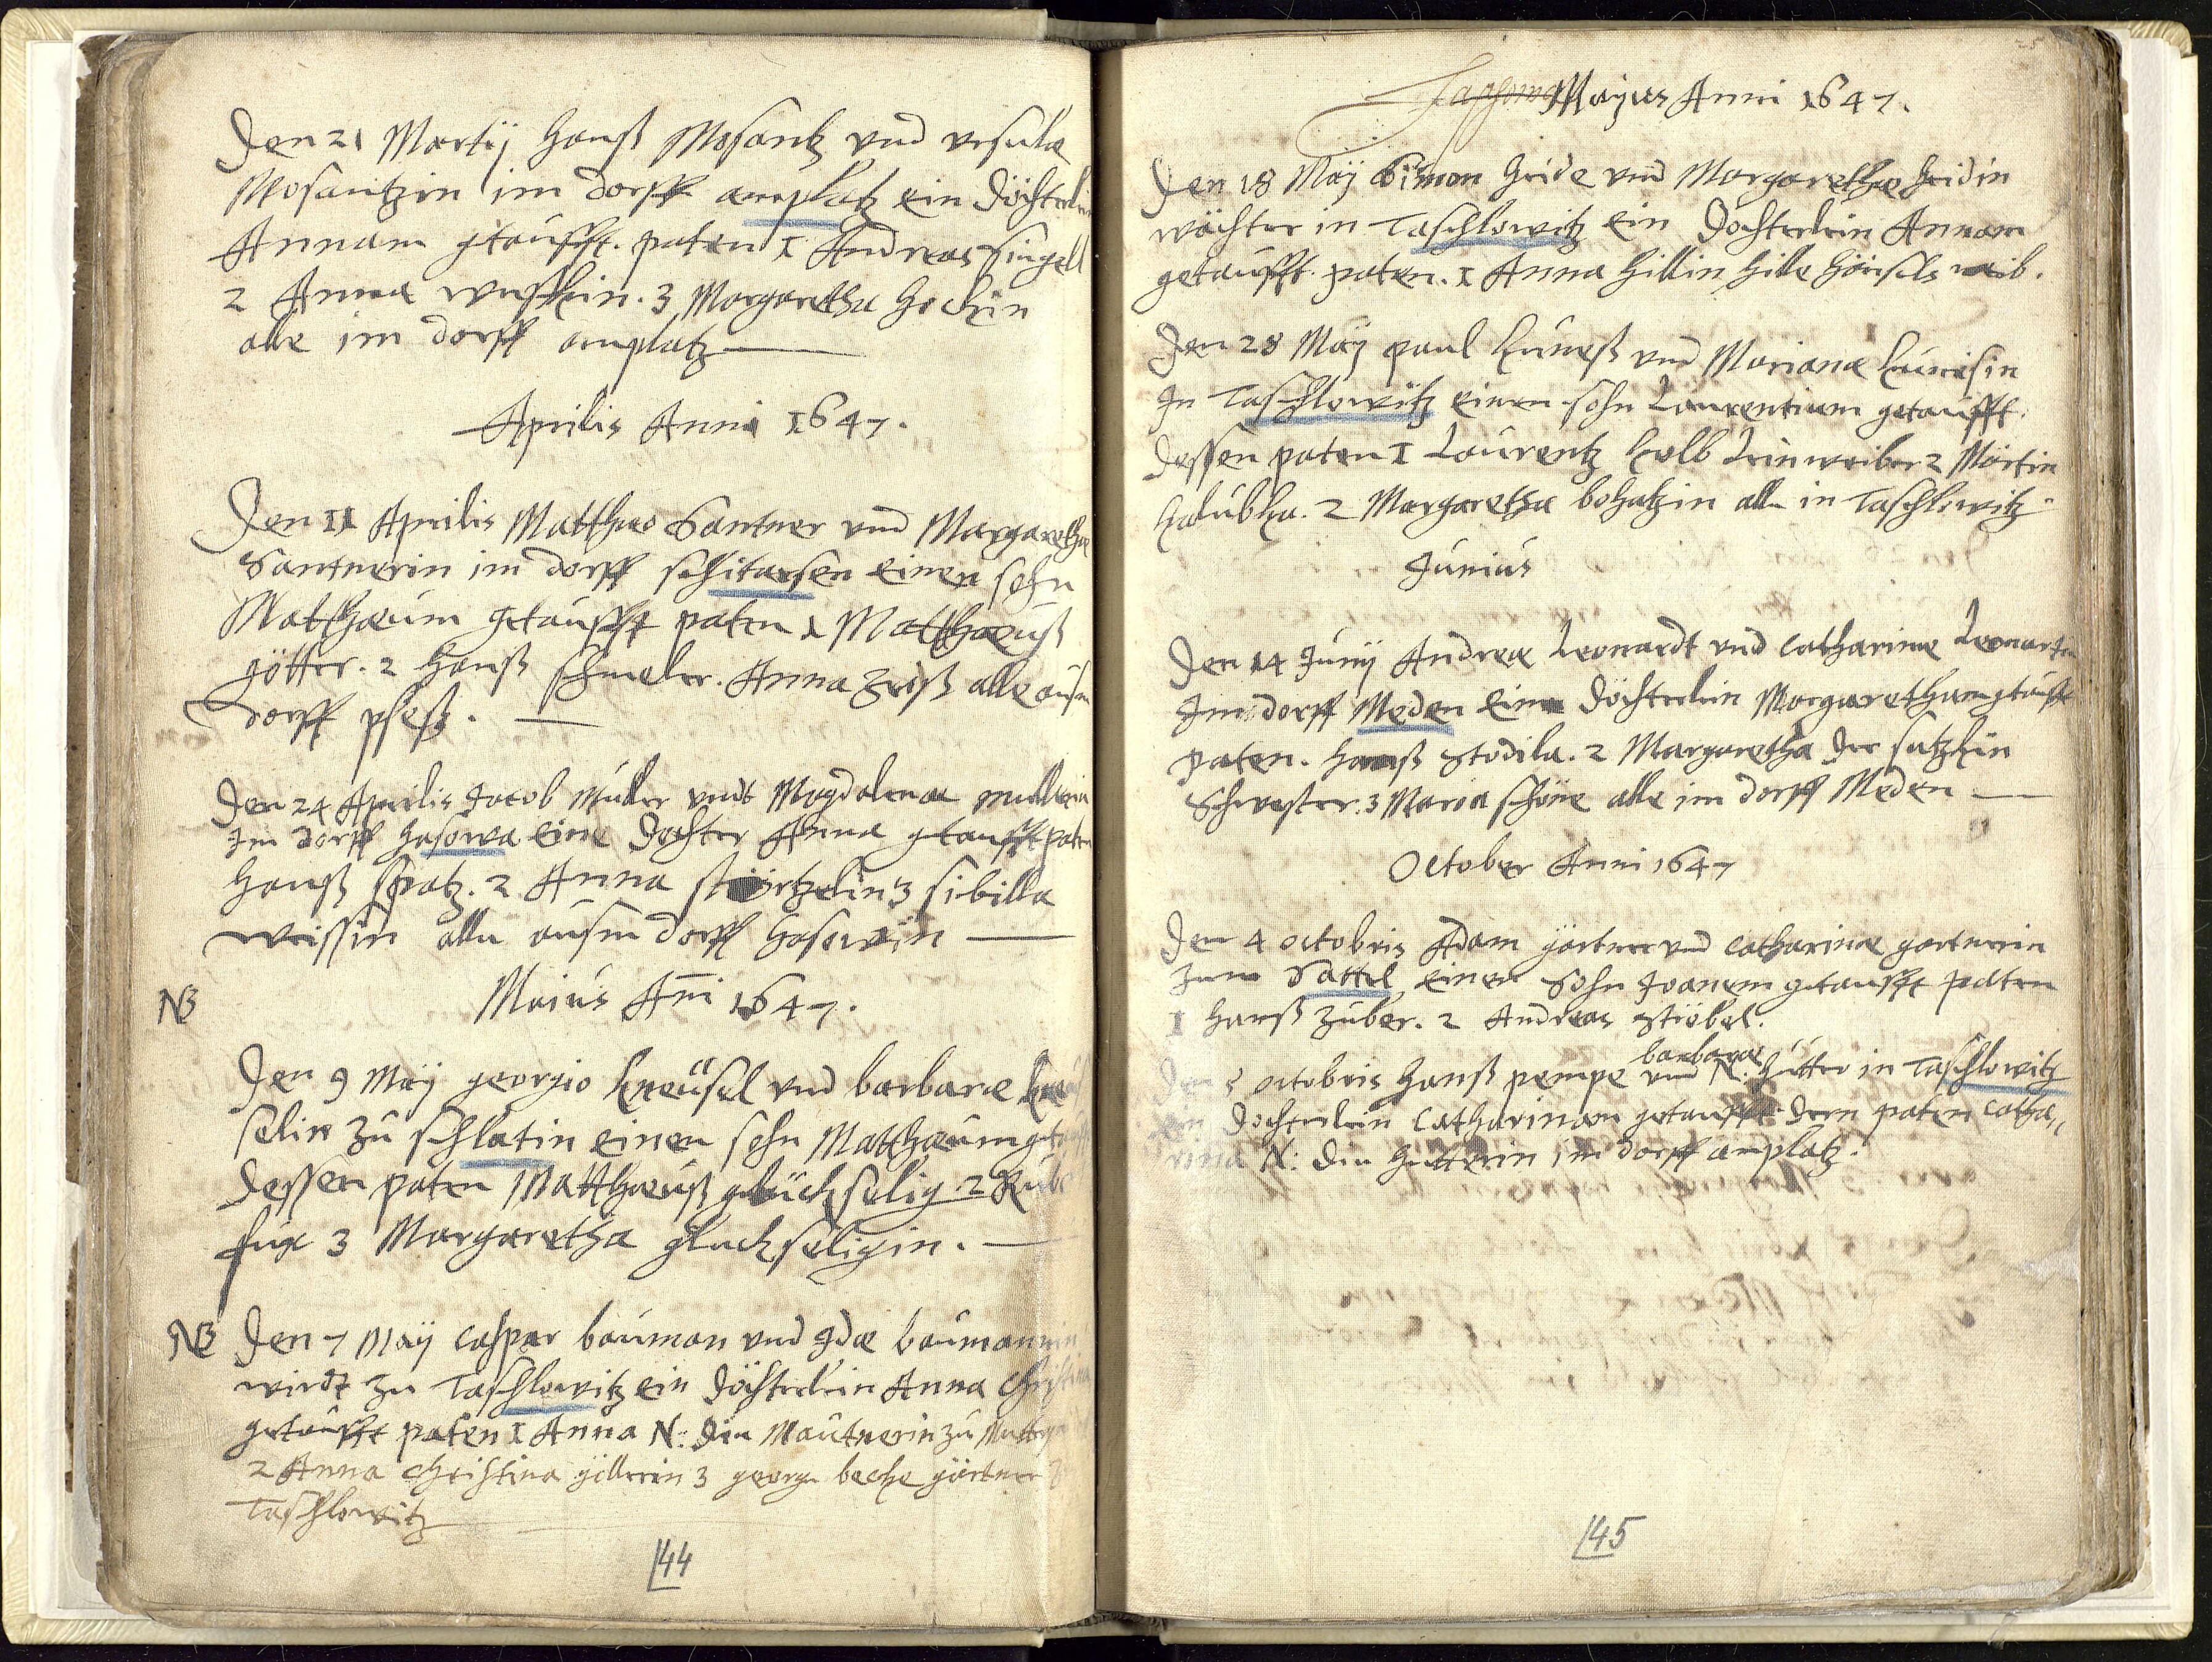 Den 21 Martij Hanß Mosantz vnd vrsula
Mosantzin im dorff amplatz ein döchterlin
Annam gtaufft. paten 1 Andreas Singell
2 Anna wusthin. 3 Margaretha Gockin
alle im dorff amplatz
Aprilis Anni 1647.
Den 11 Aprilis Matthæo Santner vnd Margaretha
Santnerin im dorff schitarsen einen sohn
Matthæum getaufft paten 1 Matthæuß
götter. 2 Hanß schmeler. Anna alle ausm
dorff
Den 24 Aprilis Jacob Müller vndt Magdalenæ mullerin
Im dorff Hasowa eine dochter Anna getaufft paten
Hanß Spatz. 2 Anna störtzelin 3 sibilla
weissin alle ausm dorff Hasowin
NB
Maiús Añi 1647.
Den 9 Maÿ georgio kneüsel vnd barbaræ
selin zu schlatin einen sohn Matthæum
dessen paten Matthæuß glückselig 2
fux 3 Margaretha gluckseligin.
NB Den 7 Maÿ Caspar bauman vnd Idæ baumannin
wirdt zu Taschlowitz ein döchterlein Anna Christina
getaufft paten 1 Anna N: die Mautnerin zu
2 Anna Christina göllerin 3 georg becke gärtner
Taschlowitz
44
Mayus Anni 1647.
Den 18 Maÿ Simon Heide vnd Margarethæ Heidin
wächter in Taschlowitz ein dochterlein Annam
getaufft. paten. 1 Anna Hillin Hille Hänsels weib.
Den 28 Maÿ paul kuneß vnd Mariana kunisin
In Taschlowitz einen sohn Laurentium getaufft.
dessen paten 1 Laurentz kolb Leinweiber 2 Märtin
Holubka. 2 Margaretha bohatzin alle in Taschlowitz
Junius
Den 14 Junij Andreæ Leonardt vnd Catharinæ Leonartin
Im dorff Meden ein döchterlein Margaretham gtaufft
paten. Hanß Stodila. 2 Margaretha der satzkin
Schwester. 3 Maria schöne alle im dorff Meden
October Anni 1647
Den 4 octobris Adam gärtner vnd Catharinæ gartnerin
zum Sattel einen Sohn Joanem getaufft paten
1 Hanß Züber. 2 Andreas Ströbel.
barbaræ
Den 5 octobris Hanß pempe vnd N: Hütter in Taschlowitz
ein dochterlein Catharinam getaufft. dern paten Catha-
rina N: die Hutterin im dorff amplatz.
45